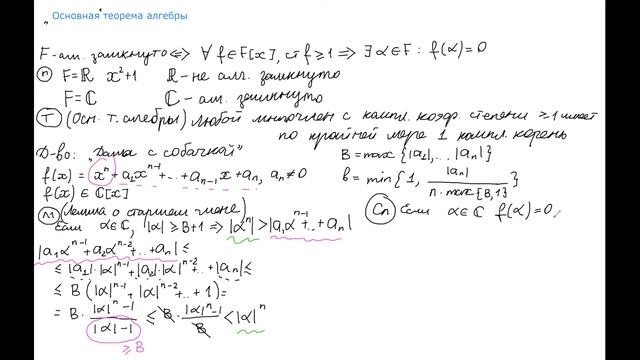 Основная теорема алгебры
F-алг. замкнуто <=> ∀ f∈F[x], ст f ≥ 1 => ∃ α∈F : f(α)=0
П F=ℝ x²+1 ℝ - не алг. замкнуто
F=ℂ ℂ - алг. замкнуто
Т (Осн. т. алгебры) Любой многочлен с компл. коэф. степени ≥1 имеет
по крайней мере 1 компл. корень
Д-во: „Дама с собачкой"
f(x) = xⁿ + a₁xⁿ⁻¹ + .. + aₙ₋₁x + aₙ, aₙ ≠ 0
f(x) ∈ ℂ[x]
B = max {|a₁|, .. |aₙ|}
b = min {1, |aₙ| / (n · max{B,1})}
Л1 (Лемма о старшем члене)
Если α∈ℂ, |α| ≥ B+1 => |αⁿ| > |a₁αⁿ⁻¹ + .. + aₙ|
|a₁αⁿ⁻¹ + a₂αⁿ⁻² + .. + aₙ| ≤
≤ |a₁|·|α|ⁿ⁻¹ + |a₂|·|α|ⁿ⁻² + .. + |aₙ| ≤
≤ B (|α|ⁿ⁻¹ + |α|ⁿ⁻² + .. + 1) =
= B · (|α|ⁿ - 1) / (|α| - 1) ≤ B · (|α|ⁿ - 1) / B < |α|ⁿ
≥ B
Сл Если α∈ℂ f(α)=0,